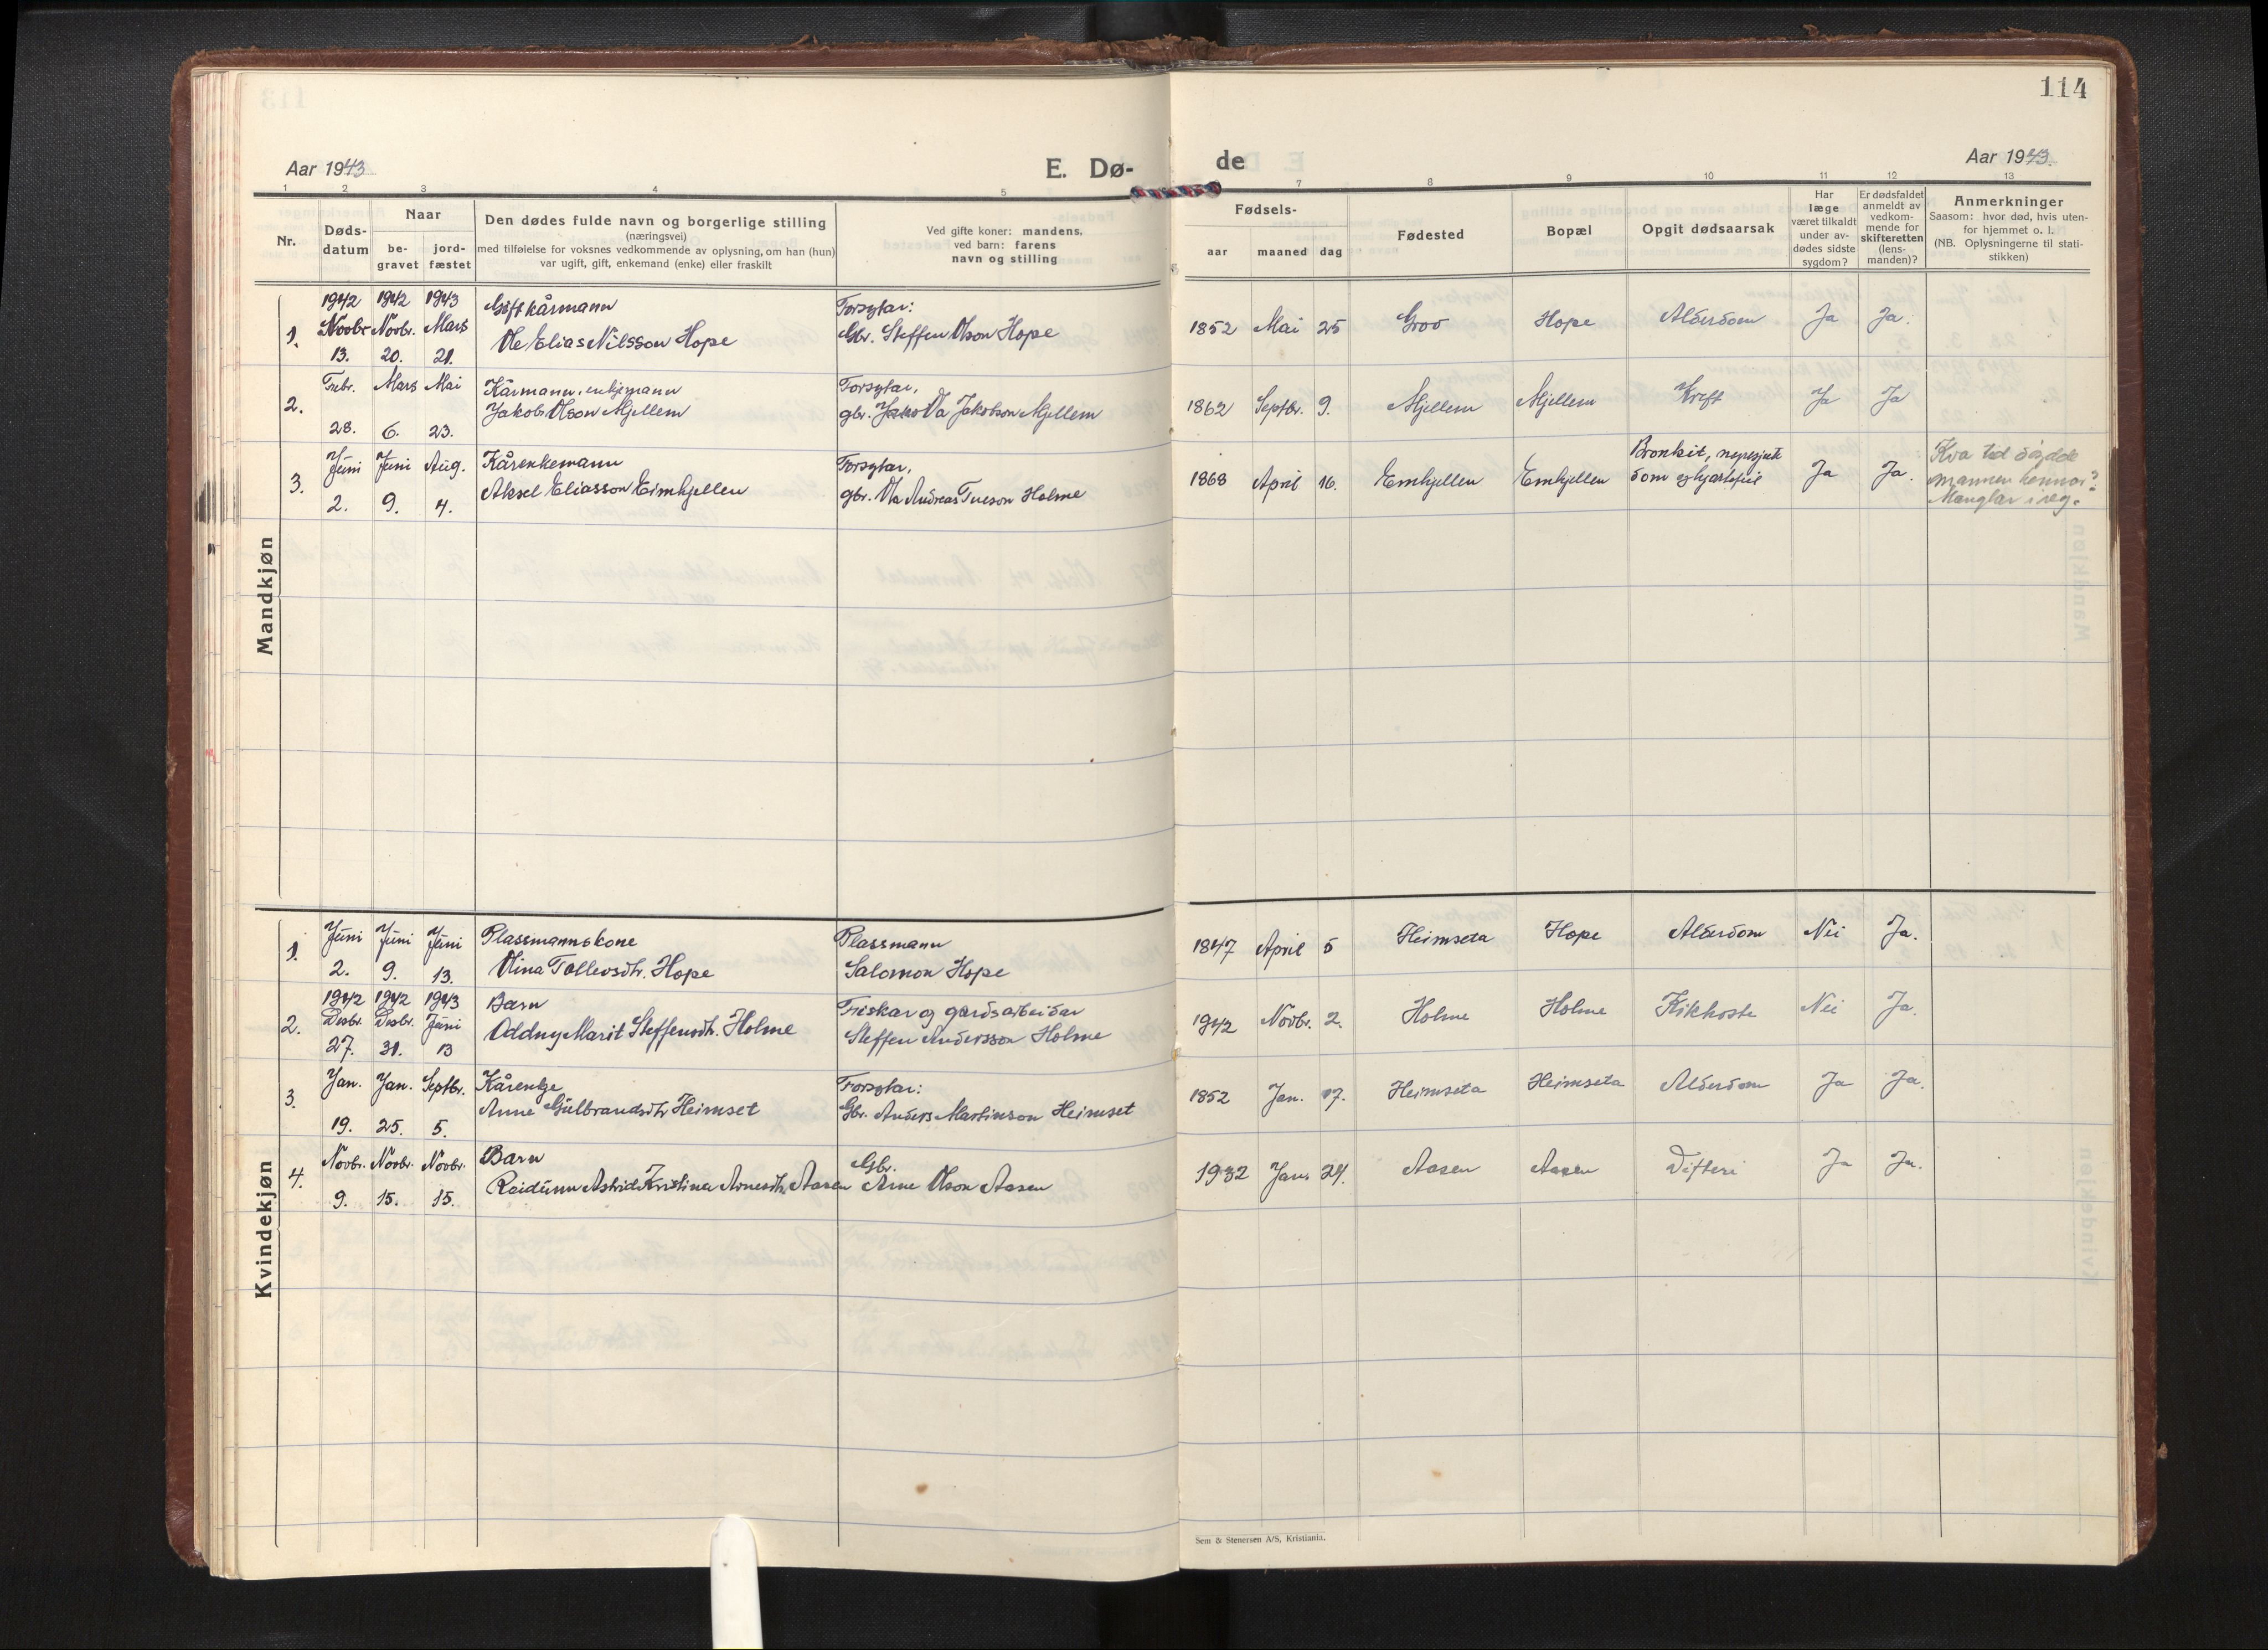 114
Aar 1943
E. Dø-
de
Aar 1943.
1 2 3 4 5 7 8 9 10 11 12 13
Nr.
Døds-
datum
Naar
be-
gravet
jord-
fæstet
Den dødes fulde navn og borgerlige stilling
(næringsvei)
med tilføielse for voksnes vedkommende av oplysning, om han (hun)
var ugift, gift, enkemand (enke) eller fraskilt
Ved gifte koner: mandens,
ved barn: farens
navn og stilling
Fødsels-
aar maaned dag
Fødested
Bopæl
Opgit dødsaarsak
Har
læge
været tilkaldt
under av-
dødes sidste
sygdom?
Er dødsfaldet
anmeldt av
vedkom-
mende for
skifteretten
(lens-
manden)?
Anmerkninger
Saasom: hvor død, hvis uten-
for hjemmet o. l.
(NB. Oplysningerne til stati-
stikken)
Mandkjøn
1942 1942 1943 Gift kårmann Forsytar:
1. Novbr Novbr. Mars Ole Elias Nilsson Hope Gbr. Steffen Olson Hope 1852 Mai 25 Grov Hope Alderdom Ja Ja.
13. 20. 21.
Febr. Mars Mai Kårmann, enkjemann Forsytar,
2. Jakob Olson Mjellem gbr. Ola Jakobson Mjellem 1862 Septbr. 9. Mjellem Mjellem Kreft Ja Ja
28. 6. 23.
Juni Juni Aug. Kårenkemann Forsytar, Bronkit, nyresjuk
3. Aksel Eliasson Eimhjellen gbr. Ola Andreas Tueson Holme 1868 April 16. Emhjellen Emhjellen dom og hjartefeil Ja Ja.
2. 9. 4.
Kva tid døydde
mannen hennar?
Manglar i reg.
Kvindekjøn
Juni Juni Juni Plassmannskone Plassmann
1. Olina Tollevsdtr. Hope Salomon Hope 1847 April 5 Heimseta Hope Alderdom Nei Ja.
2. 9. 13.
1942 1942 1943 Barn Fiskar og gardsarbeidar
2. Desbr. Desbr. Juni Oddny Marit Steffensdtr. Holme Steffen Andersson Holme 1942 Novbr. 2. Holme Holme Kikhoste Nei Ja.
27. 31. 13
Jan. Jan. Septbr. Kårenkje Forsytar:
3. Anne Gulbrandsdtr Heimset Gbr. Anders Martinson Heimset 1852 Jan. 17. Heimseta Heimseta Alderdom Ja Ja.
19. 25. 5.
Novbr. Novbr. Novbr. Barn Gbr.
4. Raidunn Astrid Kristina Arnesdtr. Aasen Arne Olson Aasen 1932 Jan. 24. Aasen Aasen Difteri Ja Ja.
9. 15. 15.
Sem & Stenersen A/S, Kristiania.